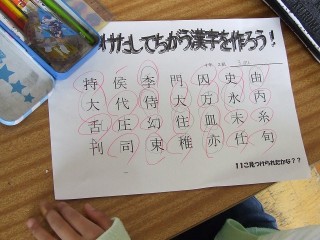 けたしてちがう漢字を作ろう！
持 侯 李 門 囚 史 由
大 代 侍 大 万 水 内
舌 庄 幻 住 皿 未 糸
刊 司 東 稚 亦 任 旬
11こ見つけられたかな？？